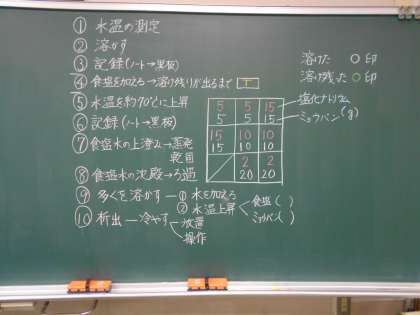 ① 水温の測定
② 溶かす
③ 記録(ノート→黒板)
④ 食塩を加える→溶け残りが出るまで
⑤ 水温を約70℃に上昇
⑥ 記録(ノート→黒板)
⑦ 食塩水の上澄み→蒸発
乾固
⑧ 食塩水の沈殿→ろ過
⑨ 多くを溶かす―① 水を加える
② 水温上昇
食塩( )
ミョウバン( )
⑩ 析出―冷やす
放置
操作
溶けた ○印
溶け残った ○印
5 5 15
5 5 15
15 10 10
15 10 10
2 2
20 20
塩化ナトリウム
ミョウバン(g)